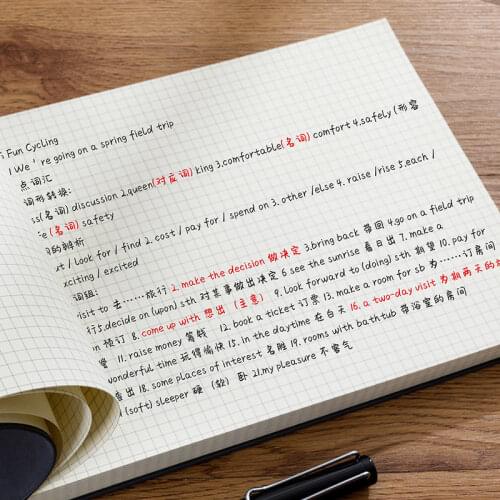 Fun Cycling
We're going on a spring field trip
点词汇
词形转换:
ss(名词) discussion 2.queen(对反词) king 3.comfortable(名词) comfort 4.safely (形容
e (名词) safety
的辨析
/ look for / find 2. cost / pay for / spend on 3. other /else 4. raise /rise 5.each /
xciting / excited
词组:
visit to 去……旅行 2. make the decision 做决定 3.bring back 带回 4.go on a field trip
行5.decide on (upon) sth 对某事做出决定 6 see the sunrise 看日出 7. make a
on 预订 8. come up with 想出 (主意) 9. Look forward to (doing) sth 期望 10. pay for
11. raise money 筹钱 12. book a ticket 订票 13. make a room for sb 为……订房间
wonderful time 玩得愉快 15. in the daytime 在白天 16. a two-day visit 为期两天的
查出 18. some places of interest 名胜 19. rooms with bathtub 带浴室的房间
(soft) sleeper 硬 (软) 卧 21.my pleasure 不客气